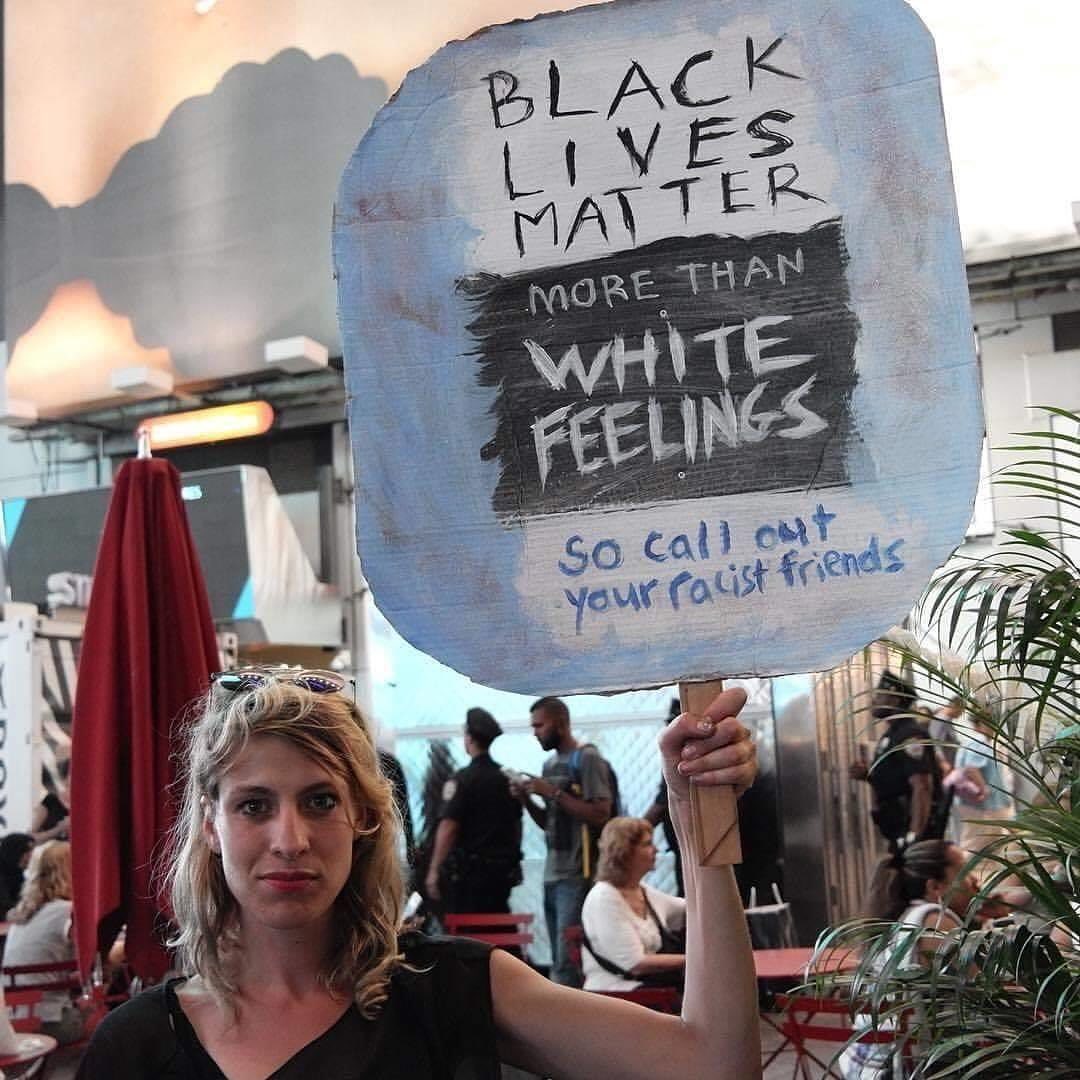 BLACK
LIVES
MATTER
MORE THAN
WHITE
FEELINGS
So call out
your racist friends